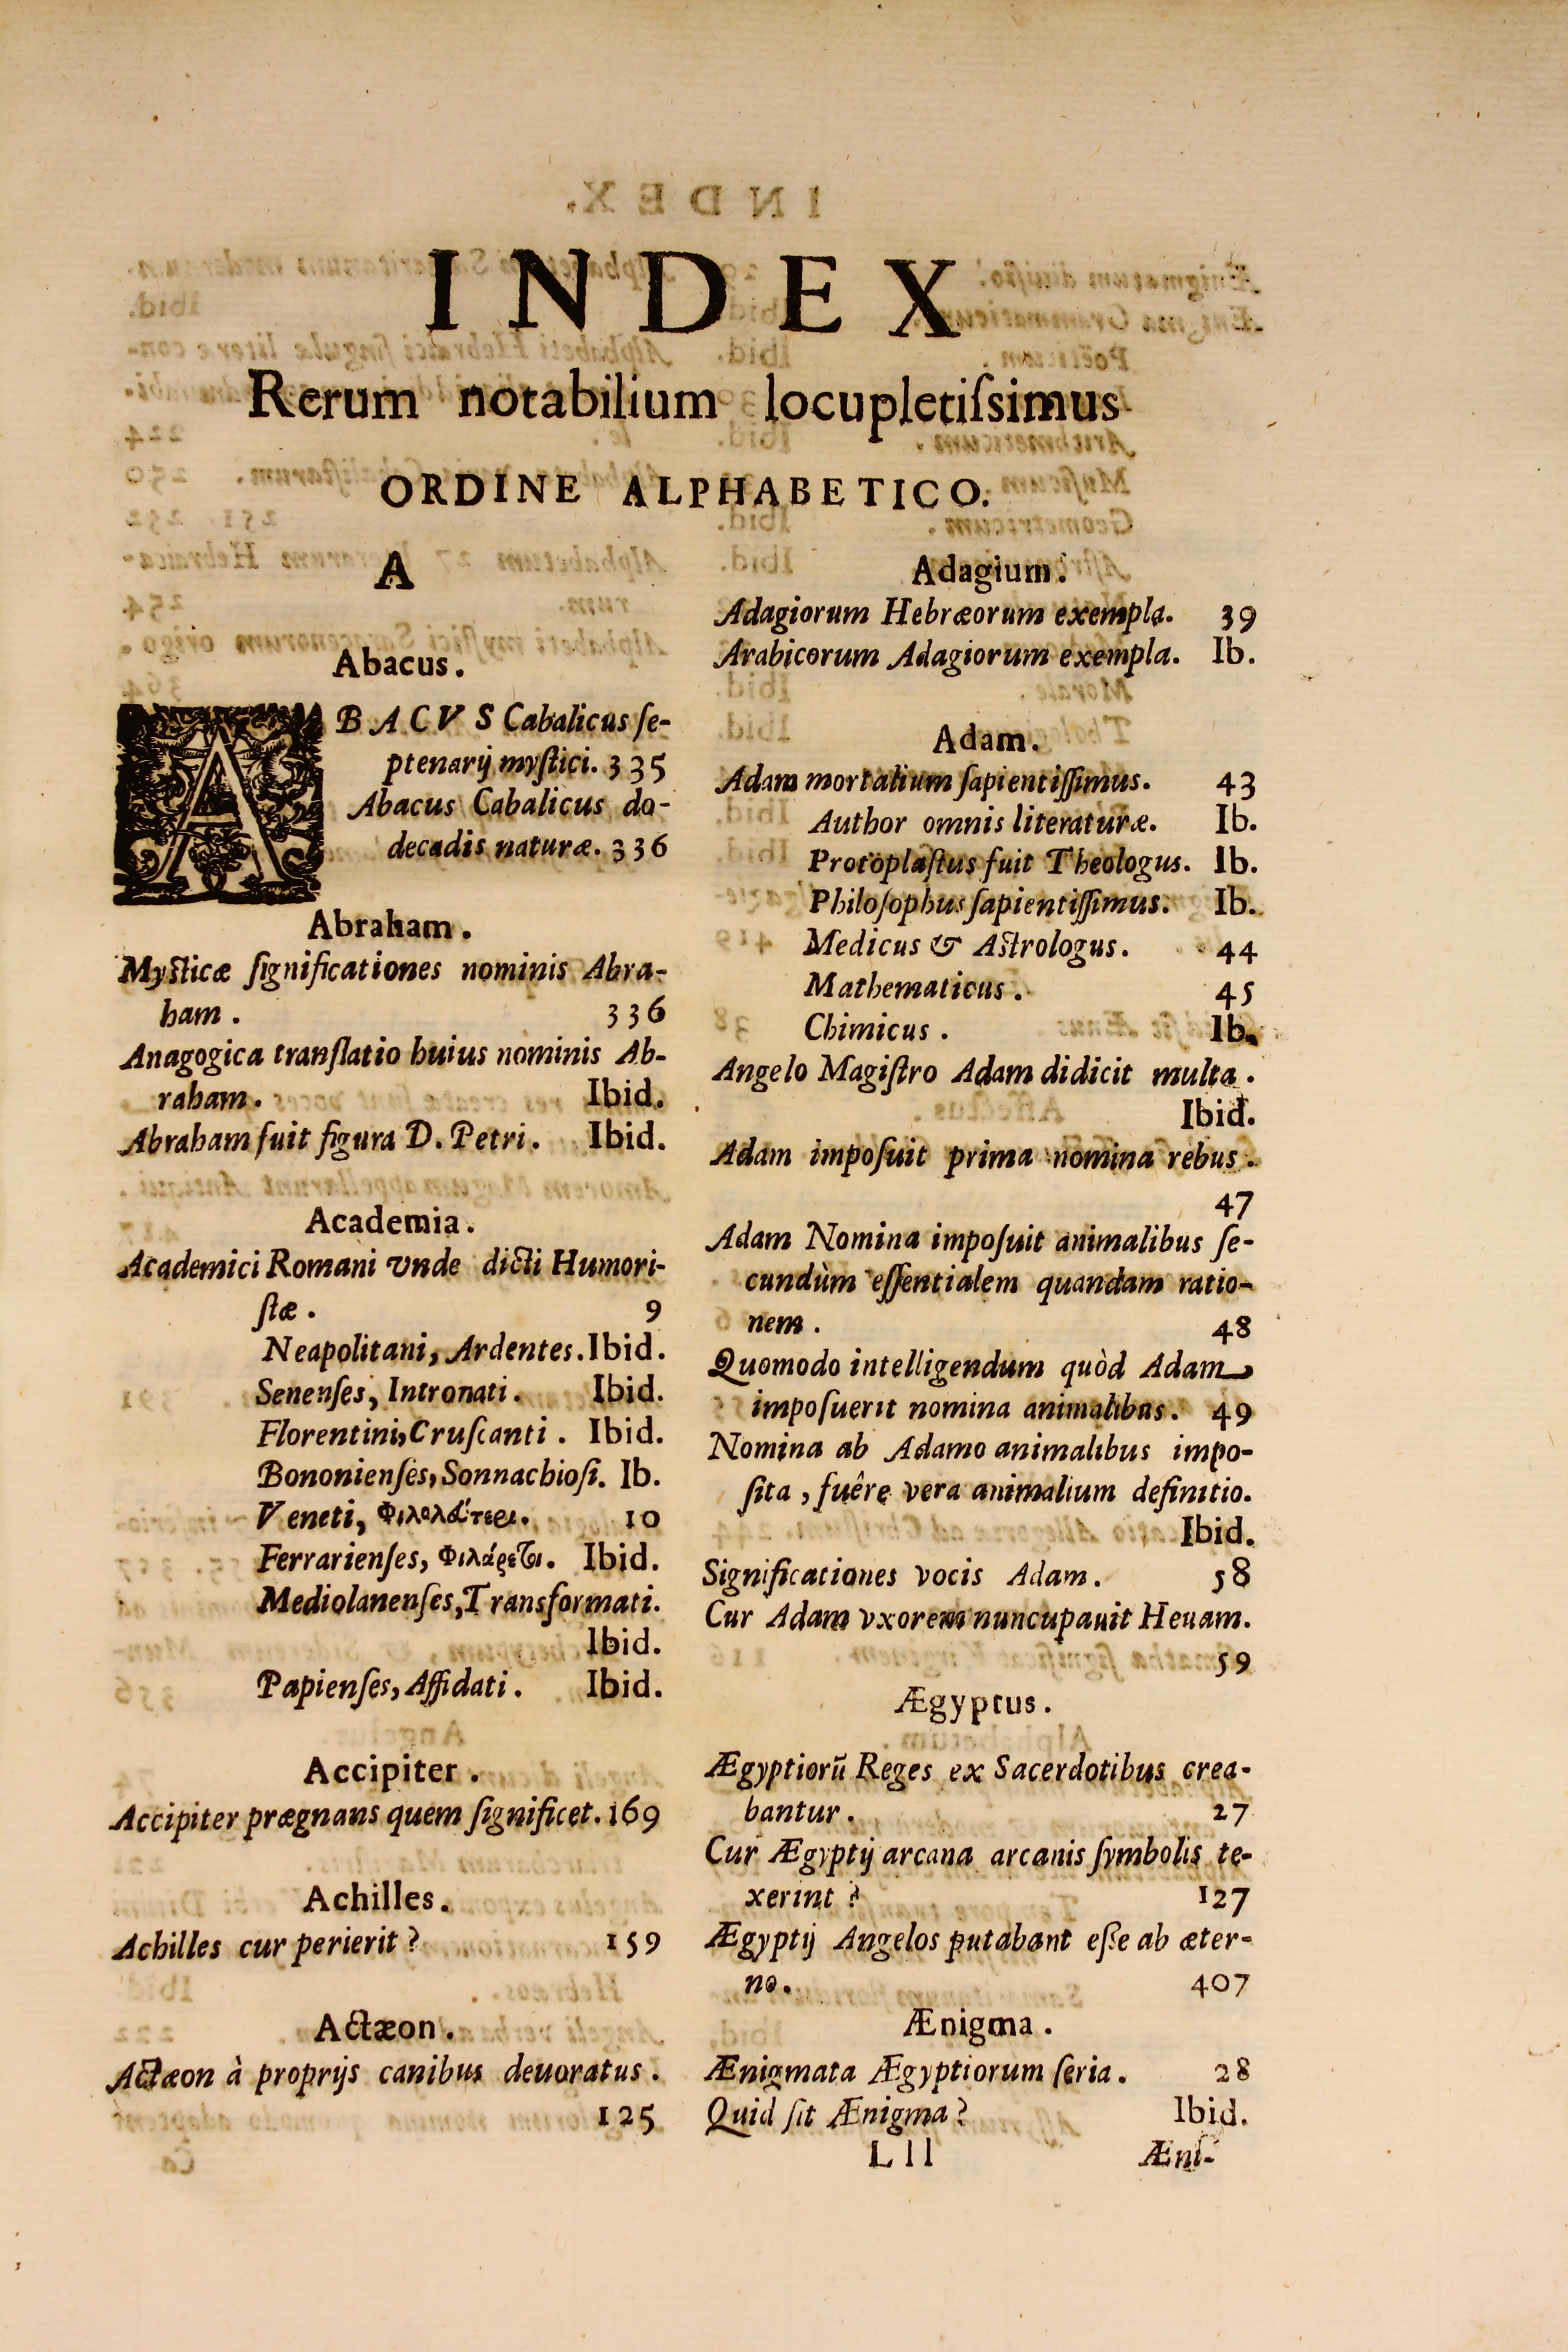 INDEX
Rerum notabilium locupletiſsimus
ORDINE ALPHABETICO.
A
Abacus.
ABACVS Cabalicus ſe-
ptenarij myſtici. 335
Abacus Cabalicus do-
decadis naturæ. 336
Abraham.
Myſticæ ſignificationes nominis Abra-
ham. 336
Anagogica tranſlatio huius nominis Ab-
raham. Ibid.
Abraham fuit figura D. Petri. Ibid.
Academia.
Academici Romani vnde dicti Humori-
ſtæ. 9
Neapolitani, Ardentes. Ibid.
Senenſes, Intronati. Ibid.
Florentini, Cruſcanti. Ibid.
Bononienſes, Sonnachioſi. Ib.
Veneti, 10
Ferrarienſes, Φιλάρετοι. Ibid.
Mediolanenſes, Transformati.
Ibid.
Papienſes, Affidati. Ibid.
Accipiter.
Accipiter prægnans quem ſignificet. 169
Achilles.
Achilles cur perierit? 159
Actæon.
Actæon à proprijs canibus deuoratus.
125
Adagium.
Adagiorum Hebræorum exempla. 39
Arabicorum Adagiorum exempla. Ib.
Adam.
Adam mortalium ſapientiſſimus. 43
Author omnis literaturæ. Ib.
Protoplaſtus fuit Theologus. Ib.
Philoſophus ſapientiſſimus. Ib.
Medicus & Aſtrologus. 44
Mathematicus. 45
Chimicus. Ib.
Angelo Magiſtro Adam didicit multa.
Ibid.
Adam impoſuit prima nomina rebus.
47
Adam Nomina impoſuit animalibus ſe-
cundùm eſſentialem quandam ratio-
nem. 48
Quomodo intelligendum quòd Adam
impoſuerit nomina animalibus. 49
Nomina ab Adamo animalibus impo-
ſita, fuêre vera animalium definitio.
Ibid.
Significationes vocis Adam. 58
Cur Adam vxorem nuncupauit Heuam.
59
Ægyptus.
Ægyptiorũ Reges ex Sacerdotibus crea-
bantur. 27
Cur Ægyptij arcana arcanis ſymbolis te-
xerint? 127
Ægyptij Angelos putabant eſſe ab æter-
no. 407
Ænigma.
Ænigmata Ægyptiorum ſeria. 28
Quid ſit Ænigma? Ibid.
Lll Æni-